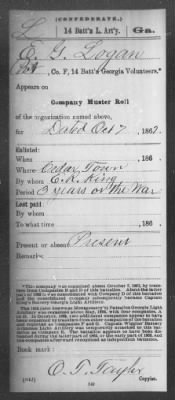 (CONFEDERATE.)
L 14 Batt'n L. Art'y. Ga.
E. G. Logan
Pvt, Co. F, 14 Batt'n Georgia Volunteers.*
Appears on
Company Muster Roll
of the organization named above,
for Dated Oct 7, 1862.
Enlisted:
When , 186 .
Where Cedar Town
By whom E. R. King
Period 3 years or the War
Last paid:
By whom
To what time , 186 .
Present or absent Present
Remarks:
Book mark:
O. T. Taylor
(642) Copyist.